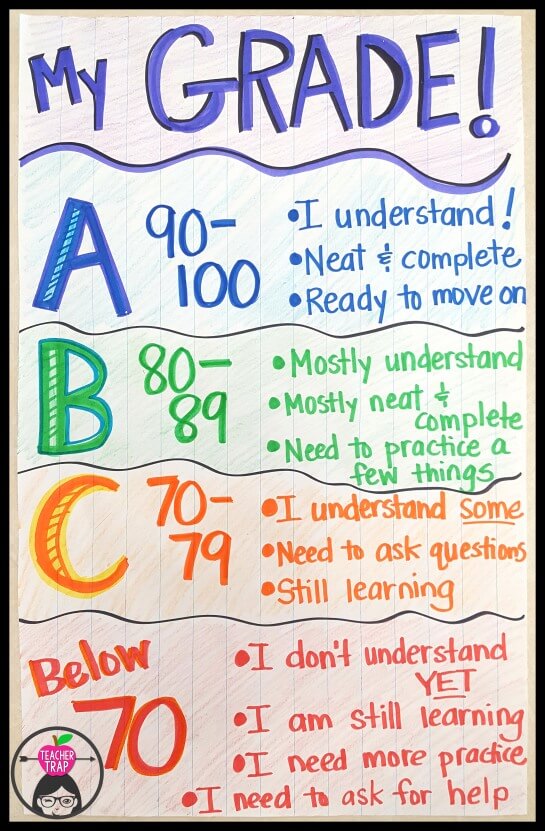 My GRADE!
A 90-
100
•I understand!
•Neat & complete
•Ready to move on
B 80-
89
•Mostly understand
•Mostly neat &
complete
•Need to practice a
few things
C 70-
79
•I understand some
•Need to ask questions
•Still learning
Below
70
•I don't understand
YET
•I am still learning
•I need more practice
•I need to ask for help
TEACHER
TRAP